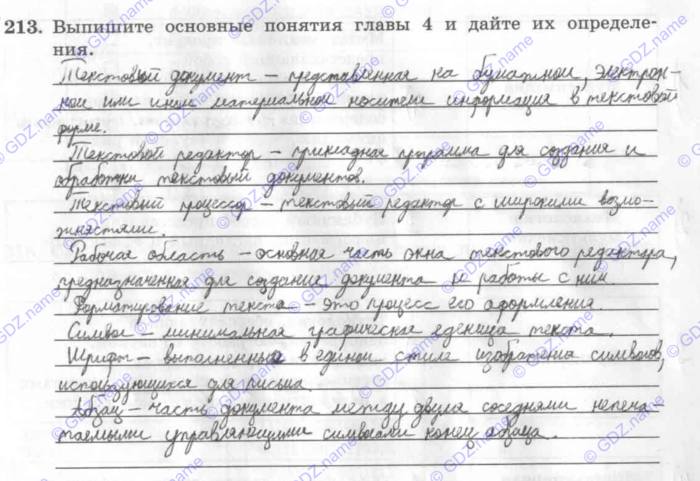 213. Выпишите основные понятия главы 4 и дайте их определе-
ния.
Текстовый документ – представленная на бумажной, электрон-
ной или ином материальном носителе информация в текстовой
форме.
Текстовой редактор – прикладная программа для создания и
обработки текстовый документов.
Текстовый процессор – текстовый редактор с широкими возмо-
жностями.
Рабочая область – основная часть окна текстового редактора,
предназначенная для создания документа и работы с ним
Форматирование текста – это процесс его оформления.
Символ – минимальная графическая еденица текста.
Шрифт – выполненные в едином стиле изображения символов,
использующихся для письма.
Абзац – часть документа между двумя соседними непеча-
таемыми управляющими символами конец абзаца.